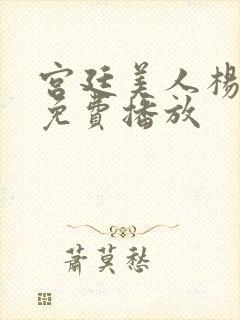 宫廷美人杨
免费播放
萧莫愁